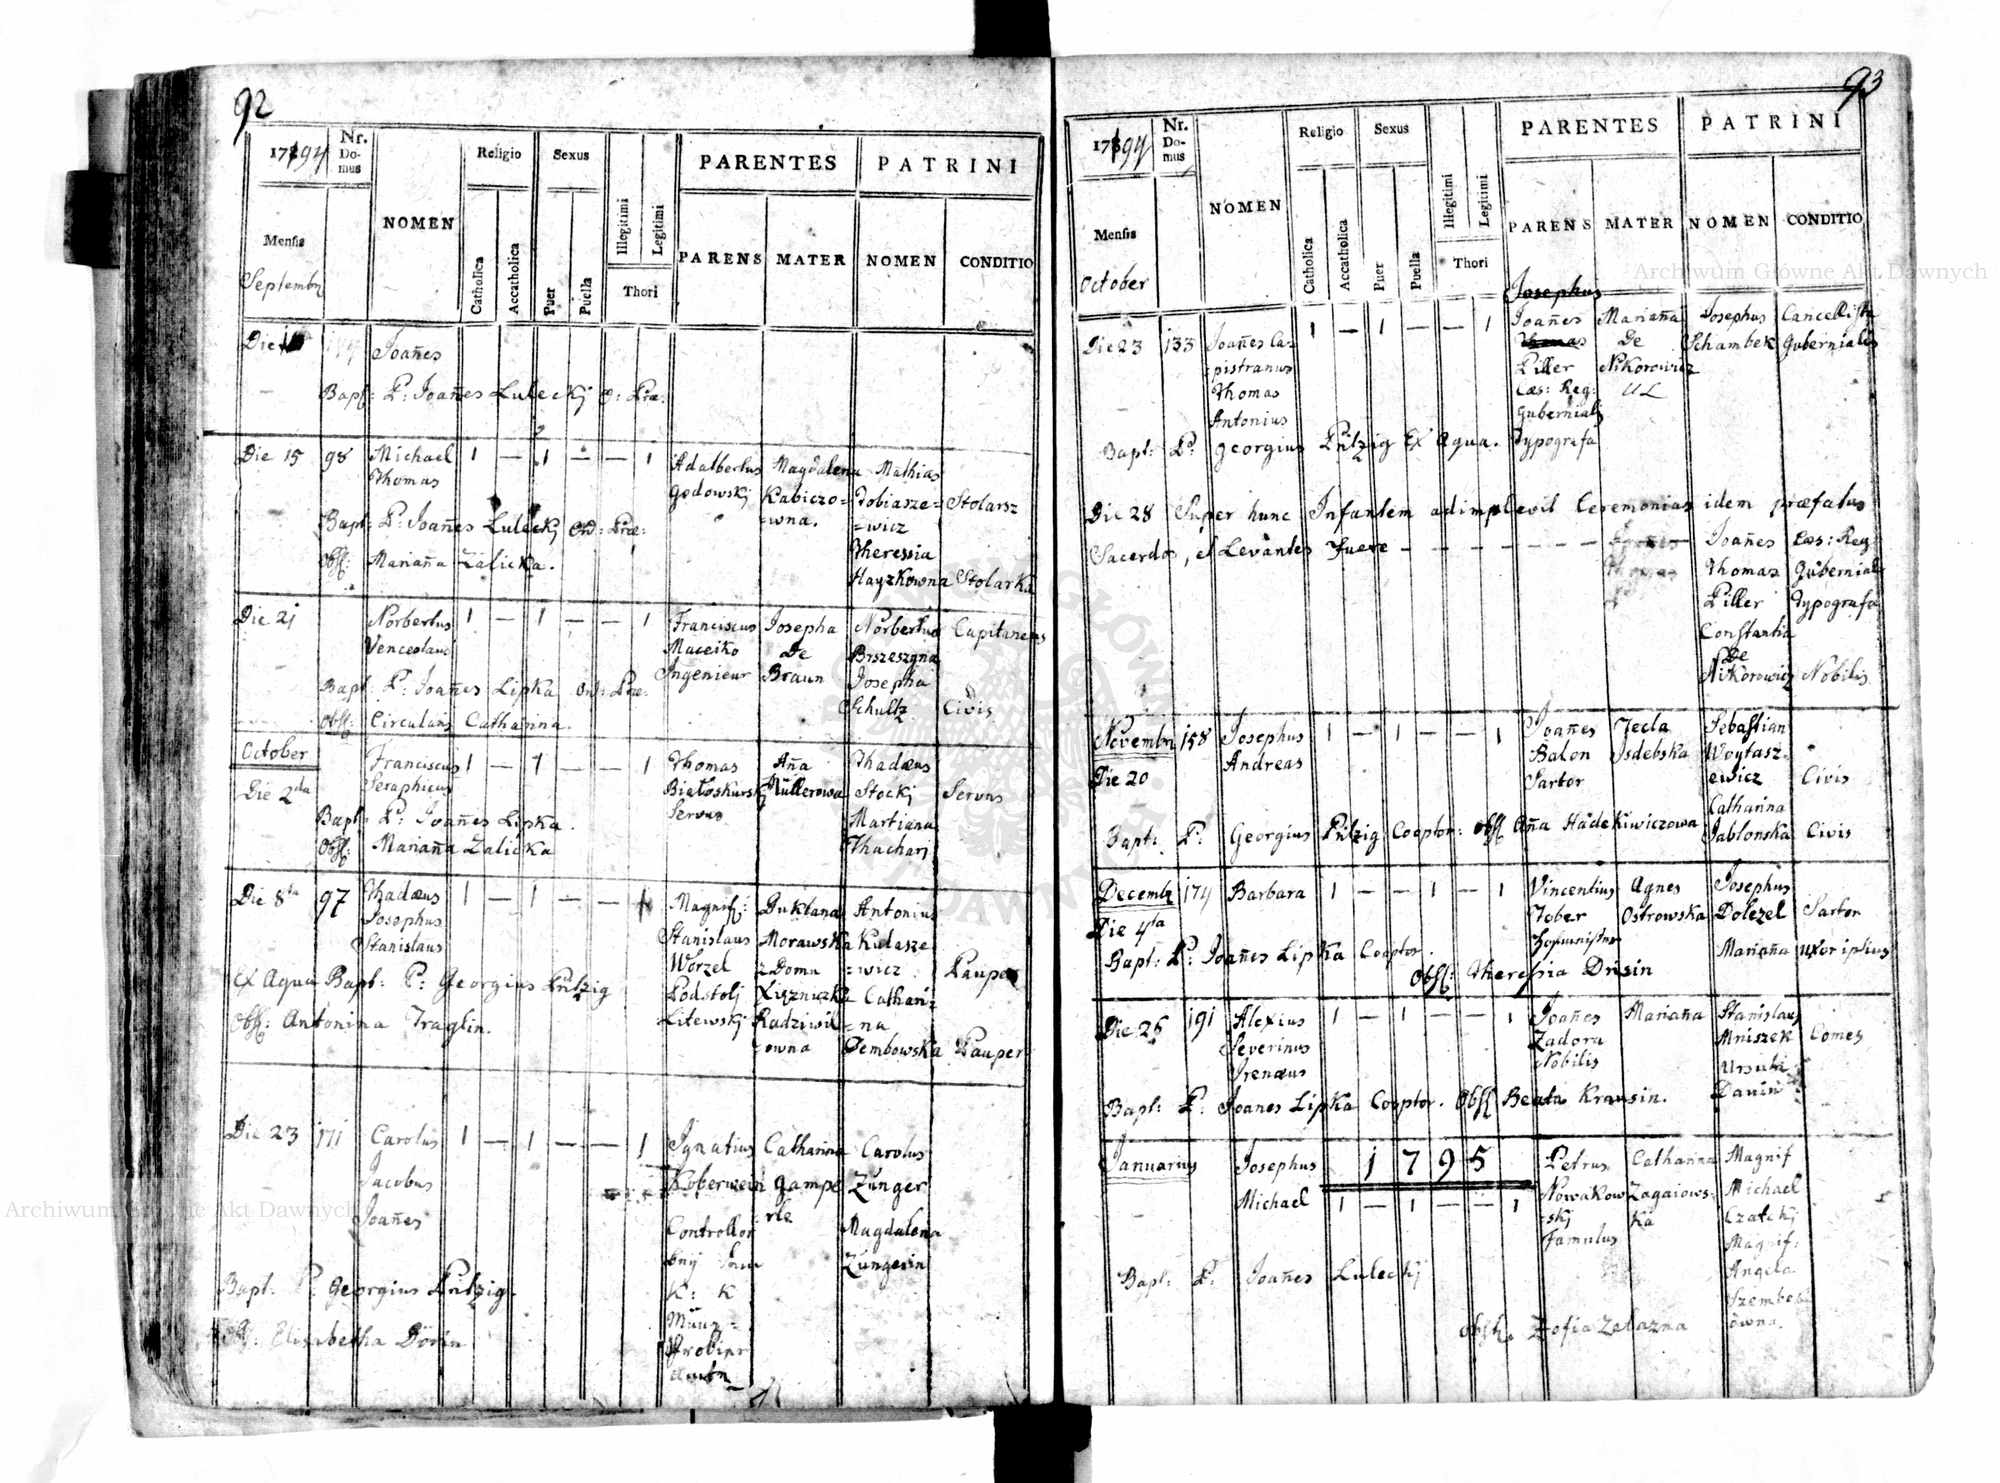 92
1794
Nr. Domus
NOMEN
Religio
Sexus
Illegitimi
Legitimi
Thori
PARENTES
PATRINI
Mensis
Septembr
Catholica
Accatholica
Puer
Puella
PARENS
MATER
NOMEN
CONDITIO
Die
Joañes
Bapt: P: Joañes Luleckj O: Præ:
Die 15 98 Michael 1 — 1 — — 1 Adalbertus Magdalena Mathias
Thomas Godowskj Kabiczo= Tobiasze= Stolarz
=wna. =wicz
Bapt: P: Joañes Luleckj Ord: Præ:
Theressia
Obst: Mariaña Zalicka.
Hayzkowna Stolarka
Die 21 Norbertus 1 — 1 — — 1 Franciscus Josepha Norbertus Capitaneus
Venceslaus Maceiko De Brszeszyna
Ingenieur Braun Josepha
Bapt: P: Joañes Lipka Ord: Præ:
Schultz Civis
Obst: Circularis Catharina.
October
Die 2da
Franciscus 1 — 1 — — 1 Thomas Aña Thadæus
Seraphicus Białoskurskj Müllerowa Stockj Servus
Servus Martiana
Bapt: P: Joañes Lipka.
Thacharj
Obst: Mariaña Zalicka
Die 8va 97 Thadæus 1 — 1 — — 1 Magnif: Duklana Antonius
Josephus Stanislaus Morawska Kulasze
Stanislaus Worzel z Domu =wicz Pauper
Podstolj Xięzniczka Cathari=
Ex Aqua Bapt: P: Georgius Pitzig
Litewskj Radziwil =na
Obst: Antonina Traglin.
=owna Dembowska Pauper
Die 23 171 Carolus 1 — 1 — — 1 Ignatius Catharina Carolus
Jacobus Koberwein Gampe Zünger
Joañes =rle
Controllor Magdalena
Züngerin
K: K
Bapt: P: Georgius Pitzig.
Münz=
Obst: Elisabetha Dörin
Probier
Ambt
93
1794
Nr. Domus
NOMEN
Religio
Sexus
Illegitimi
Legitimi
Thori
PARENTES
PATRINI
Mensis
October
Catholica
Accatholica
Puer
Puella
PARENS
MATER
NOMEN
CONDITIO
Josephus
Die 23 133 Joañes Ca= 1 — 1 — — 1 Joañes Mariaña Josephus Cancellista
=pistranus Thomas De Schambek Gubernialis
Thomas Piller Nikorowicz
Antonius Cæs: Reg: UL
Gubernialis
Bapt: P: Georgius Pitzig Ex Aqua. Typografa
Die 28 Super hunc Infantem adimplevit Ceremonias idem præfatus
Sacerdos, et Levantes fuere — — — — — — Joañes Cæs: Reg
Thomas Gubernial
Piller Typografa
Constantia
De
Nikorowicz Nobilis
Novembr 158 Josephus 1 — 1 — — 1 Joañes Tecla Sebastian
Die 20 Andreas Balon Isdebska Woytasz=
Sartor ewicz Civis
Catharina
Bapt: P: Georgius Pitzig Cooptor: Obst Aña Hadekiwiczowa Jablonska Civis
Decemb 174 Barbara 1 — — 1 — 1 Vincentius Agnes Josephus
Die 4ta Tober Ostrowska Dolezel Sartor
Bapt: P: Joañes Lipka Cooptor.
Mariaña uxor ipsius
Obst: Theressia Drisin
Die 26 191 Alexius 1 — 1 — — 1 Joañes Mariaña Stanislaus
Severinus Zadora Mniszek Comes
Irenæus Nobilis Ursula
Bapt: P: Joanes Lipka Cooptor. Obst Beata Krausin.
1795
Januarius Josephus Petrus Catharina Magnif
Michael 1 — 1 — — 1 Nowakow Zagaiows= Michael
=skj ka Czatckj
Famulus Magnif:
Bapt: P: Joañes Luleckj
Angela
Szembek
ówna.
Obst: Zofia Zelazna
Archiwum Główne Akt Dawnych
Archiwum Główne Akt Dawnych